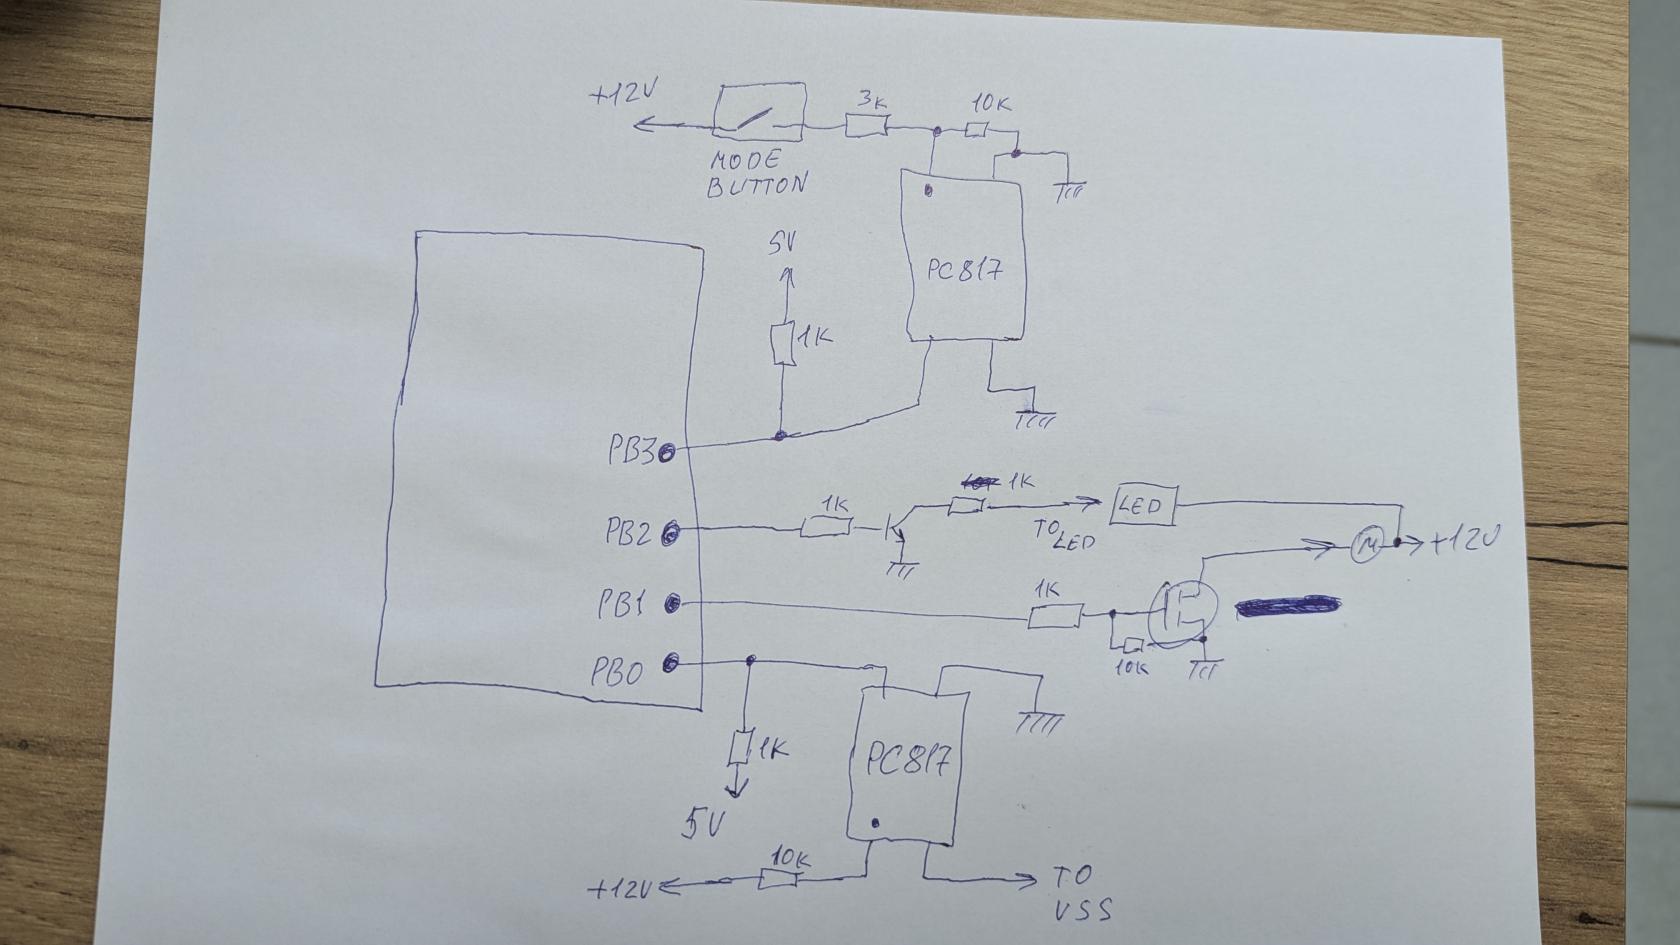 +12V
3K
10K
MODE
BUTTON
5V
PC817
1K
PB3
1K
1K
LED
TO
LED
PB2
M
+12V
PB1
1K
10K
PB0
1K
PC817
5V
10K
+12V
TO
VSS